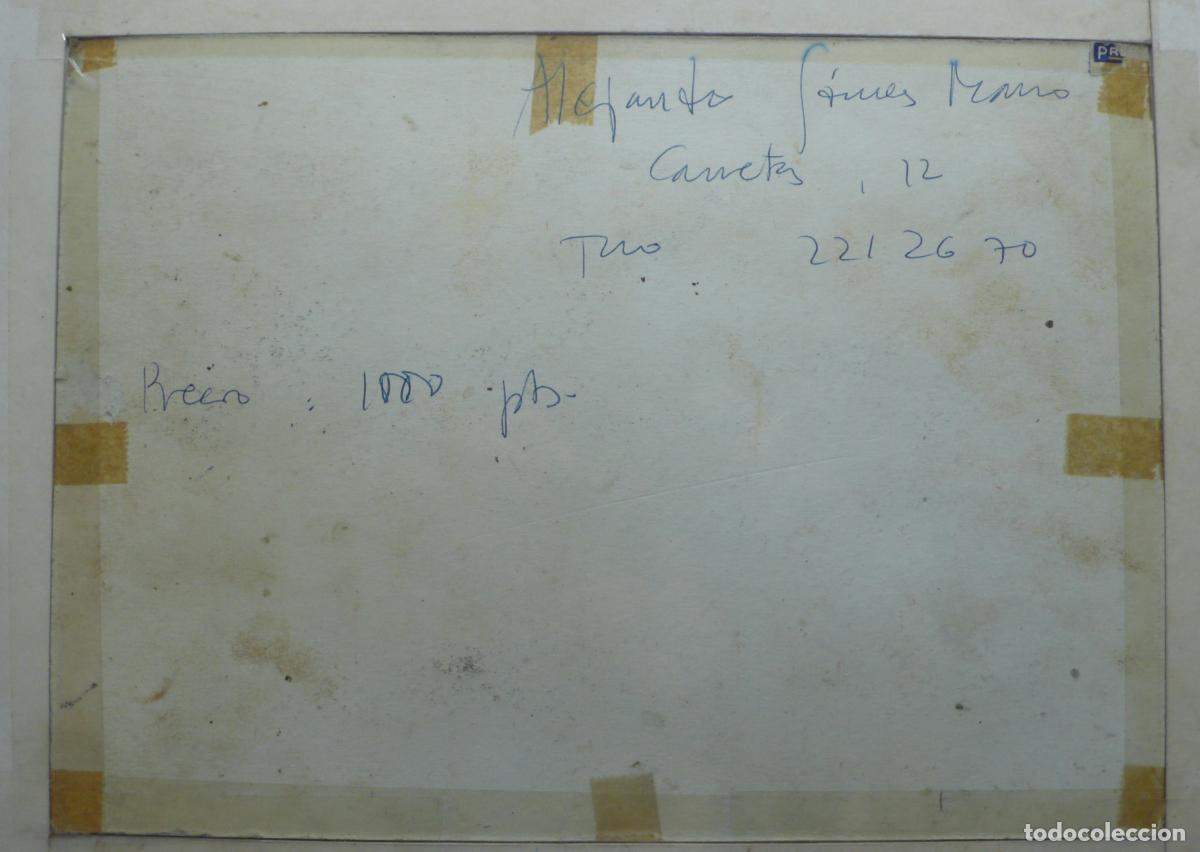 PR
Alejandro Gómez Marro
Carretas, 12
Tno 221 26 70
Precio: 1000 pts.
todocoleccion